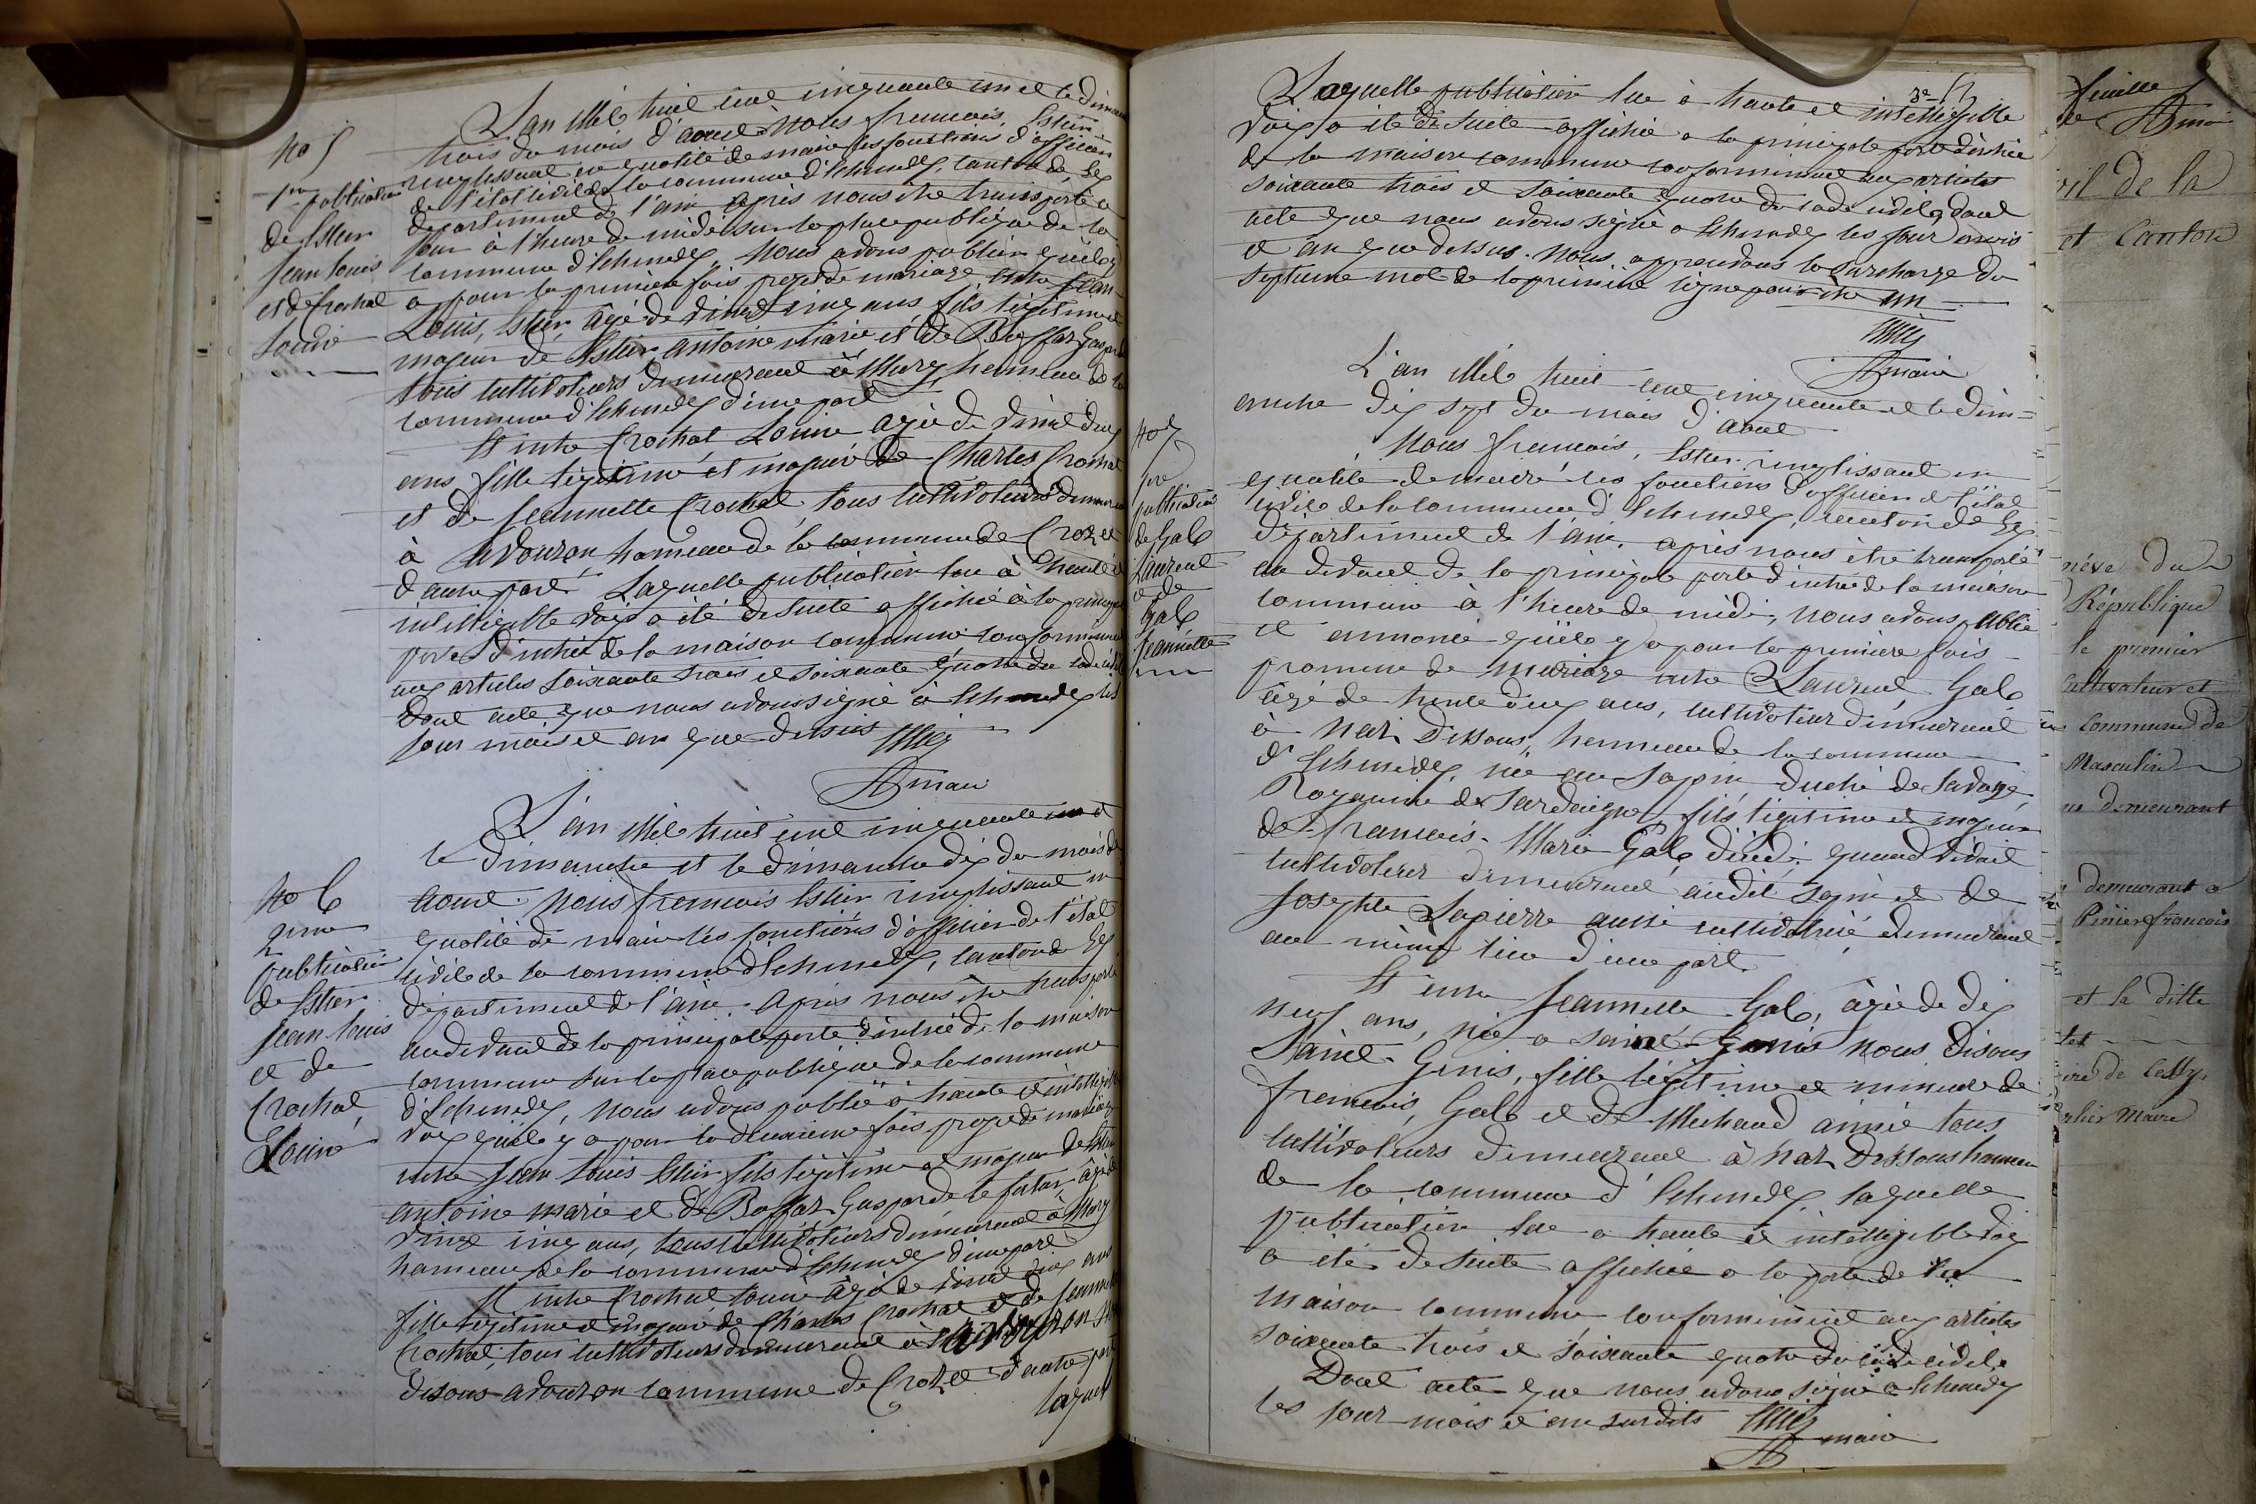 No 5
1re publication
de Estier
Jean Louis
et de Crochat
Louise
L'an Mil huit cent cinquante un et le diman
trois du mois d'aout Nous francois, Estier
remplissant en qualité de maire les fonctions d'officier
de l'état civil de la commune d'Echenevex, canton de Gex
departement de l'ain après nous être transporté a
jour à l'heure de midi sur la place publique de la
commune d'Echenevex, Nous avons publier qu'il y
a pour la première fois projet de mariage entre Jean
Louis, Estier, âgé de vingt cinq ans fils légitime et
majeur de Estier, antoine marie et de Buffaz Gasparde
tous cultivateurs demeurant à Mury, hameau de la
commune d'Echenevex d'une part
Et entre Crochat Louise agée de vingt deux
ans fille légitime et majeure de Charles Crochat
et de Jeannette Crochat, tous cultivateurs demeurant
à avouzon, hameau de la commune de Crozet
d'autre part. Laquelle publication lue à haute et
intelligible voix a été de suite affichée à la principale
porte d'entrée de la maison commune conformément
aux articles soixante trois et soixante quatre du code civil
Dont acte que nous avons signé a Echenevex les
jour mois et an que dessus
maire
No 6
2me
publication
de Estier
Jean Louis
et de
Crochat
Louise
L'an Mil huit cent cinquante un et
le dimanche et le dimanche dix du mois de
aout Nous francois Estier remplissant en
qualité de maire les fonctions d'officier de l'état
civil de la commune d'Echenevex, canton de Gex
departement de l'ain. Après nous être transporté
au devant de la principale porte d'entrée de la maison
commune sur la place publique de la commune
d'Echenevex, nous avons publié à haute et intelligible
voix qu'il y a pour la deuxieme fois projet de mariage
entre Jean Louis Estier fils légitime et majeur de Estier
antoine marie et de Buffaz Gasparde le futur âgé de
vingt cinq ans, tous cultivateurs demeurant à Mury
hameau de la commune d'Echenevex d'une part
Et entre Crochat Louise âgée de vingt deux ans
fille légitime et majeure de Charles Crochat et de Jeannette
Crochat, tous cultivateurs demeurant à
disons avouzon commune de Crozet d'autre part
Laquel
Laquelle publication lue à haute et intelligible
voix a été de suite affichée a la principale porte d'entrée
de la maison commune conformément aux articles
soixante trois et soixante quatre du code civil, dont
acte que nous avons signé a Echenevex les jour mois
et an que dessus. Nous approuvons la surcharge du
septieme mot de la première ligne pour être un
maire
No 7
1re
publication
de Gal
Laurent
et de
Gal
Jeannette
L'an Mil huit cent cinquante et le dim=
anche dix sept du mois d'aout
Nous francois, Estier remplissant en
qualité de maire les fonctions d'officier de l'état
civil de la commune d'Echenevex, canton de Gex
département de l'ain. après nous être transporté
au devant de la principale porte d'entrée de la maison
commune à l'heure de midi, nous avons publié
et annoncé qu'il y a pour la première fois
promesse de mariage entre Laurent Gal
âgé de trente deux ans, cultivateur demeurant
à Naz Dessous, hameau de la commune
d'Echenevex, né au Sapin, Duché de Savoye,
Royaume de Sardaigne, fils légitime et majeur
de francois Marie Gal décédé quand vivait
cultivateur demeurant audit Sapin et de
Josephte Lapierre aussi cultivatrice, demeurant
au même lieu d'une part
Et entre Jeannette Gal, âgée de dix
neuf ans, née a saint Genis nous disons
Saint Genis, fille légitime et mineure de
francois, Gal et de Michaud aimée tous
cultivateurs demeurant à Naz Dessous hameau
de la commune d'Echenevex, laquelle
publication lue a haute et intelligible voix
a été de suite affichée a la porte de la
maison commune conformément aux articles
soixante trois et soixante quatre du code civil.
Dont acte que nous avons signé a Echenevex
les jour mois et an surdits
maire
feuille
vil de la
et Canton
République
le premier
cultivateur et
commune de
Masculin
demeurant
demeurant a
francois
et la ditte
de Cessy
Maire